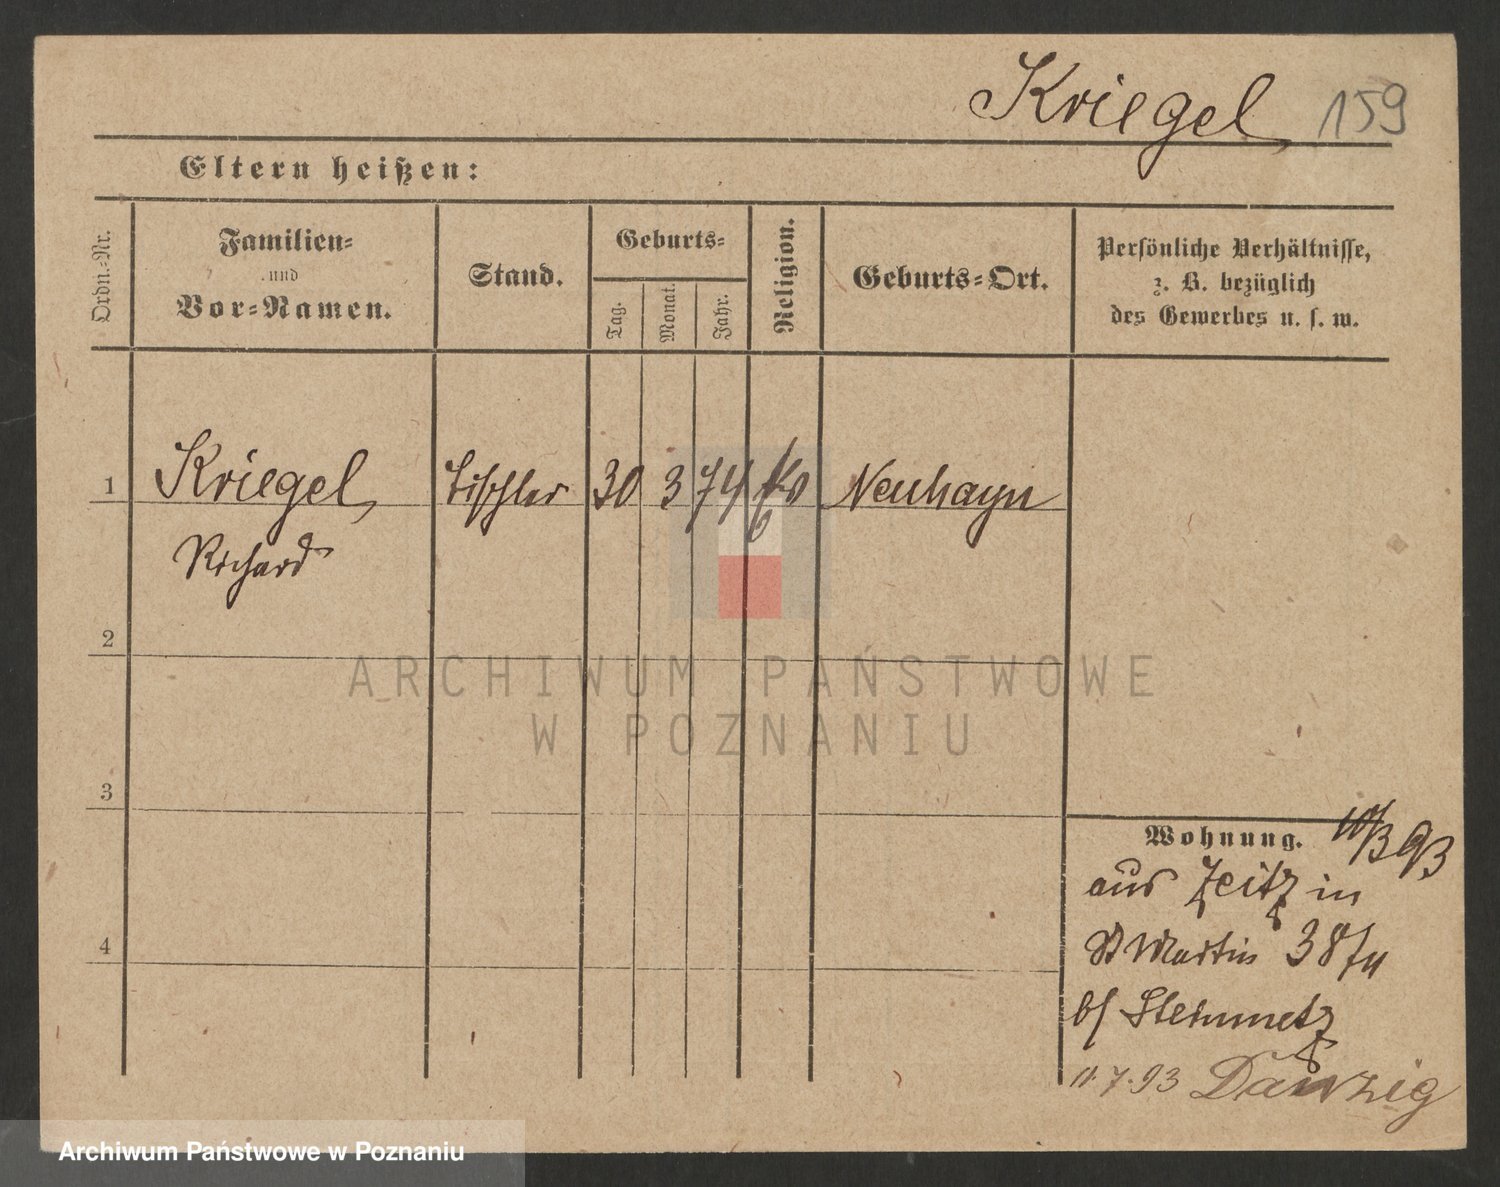 Kriegel 159
Eltern heißen:
Ordn.-Nr.
Familien-
und
Vor-Namen.
Stand.
Geburts-
Tag.
Monat.
Jahr.
Religion.
Geburts-Ort.
Persönliche Verhältnisse,
z. B. bezüglich
des Gewerbes u. s. w.
1 Kriegel Tischler 30 3 74 Neuhayn
Richard
2
ARCHIWUM PAŃSTWOWE
W POZNANIU
3
Wohnung. 10/3 93
aus Zeitz in
St Martin 38
b/ Steinmetz
4
11.7.93 Danzig
Archiwum Państwowe w Poznaniu